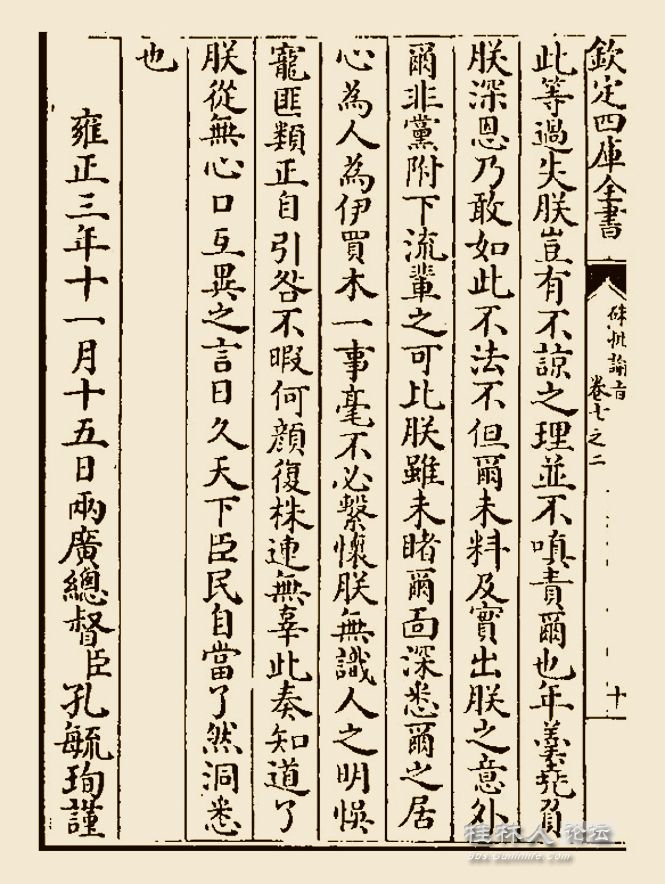 欽定四庫全書
硃批諭旨 卷七之二
十
此等過失朕豈有不諒之理並不嗔責爾也年羹堯負
朕深恩乃敢如此不法不但爾未料及實出朕之意外
爾非黨附下流輩之可比朕雖未睹爾面深悉爾之居
心為人為伊買木一事毫不必繫懷朕無識人之明悞
寵匪類正自引咎不暇何顔復株連無辜此奏知道了
朕從無心口互異之言日久天下臣民自當了然洞悉
也
雍正三年十一月十五日兩廣總督臣孔毓珣謹
桂林人论坛
bbs.Guilinlife.Com